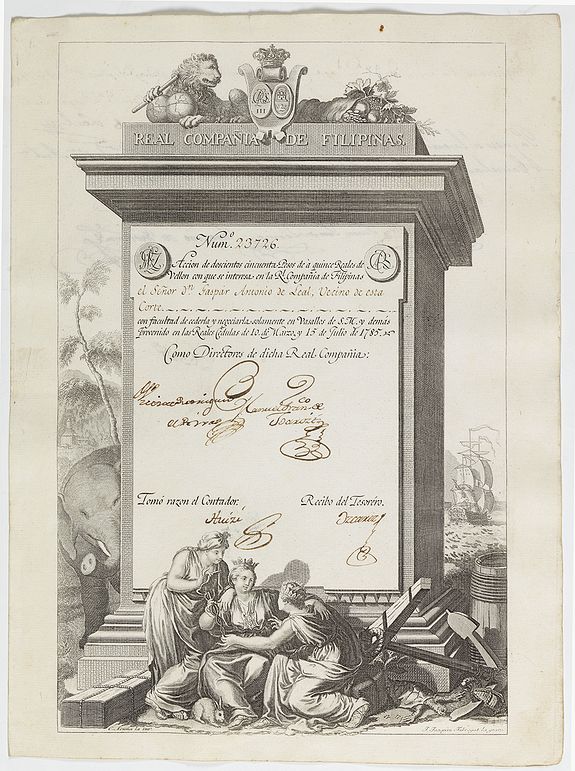 III
REAL COMPAÑIA DE FILIPINAS.
Num.º 23726
Accion de doscientos cincuenta Pesos de a quince Reales de
Vellon con que se interesa en la Rl. Compañia de Filipinas
el Señor Dn. Gaspár Antonio de Leàl, Vecino de esta
Corte.
con facultad de cederla y negociarla solamente en Vasallos de S.M. y demás
prevenido en las Reales Cédulas de 10. de Marzo, y 15 de Julio de 1785.
Como Directores de dicha Real Compañia:
Manuel Fran.co de
Tomó razon el Contador.
Recibo del Tesorero.
la inv.
J. Joaquin Fabregat la grabó